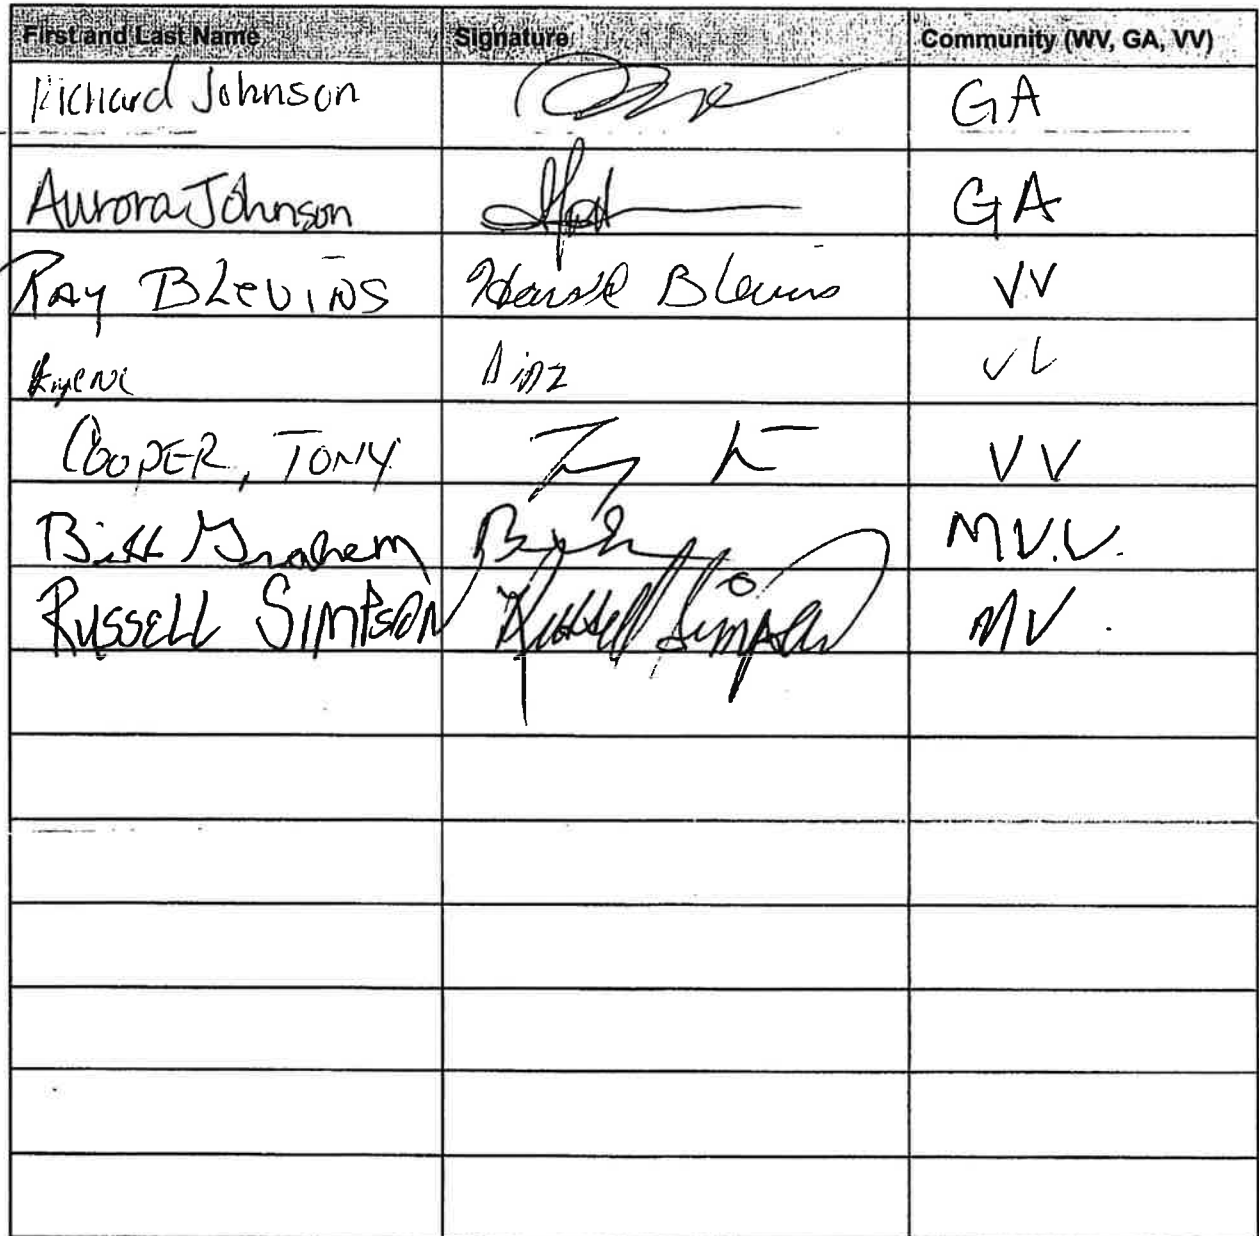 First and Last Name Signature Community (WV, GA, VV)
Richard Johnson GA
Aurora Johnson GA
RAY BLEVINS Blevins VV
COOPER, TONY VV
Graham M V.V.
RUSSELL SIMPSON Russell Simpson MV.